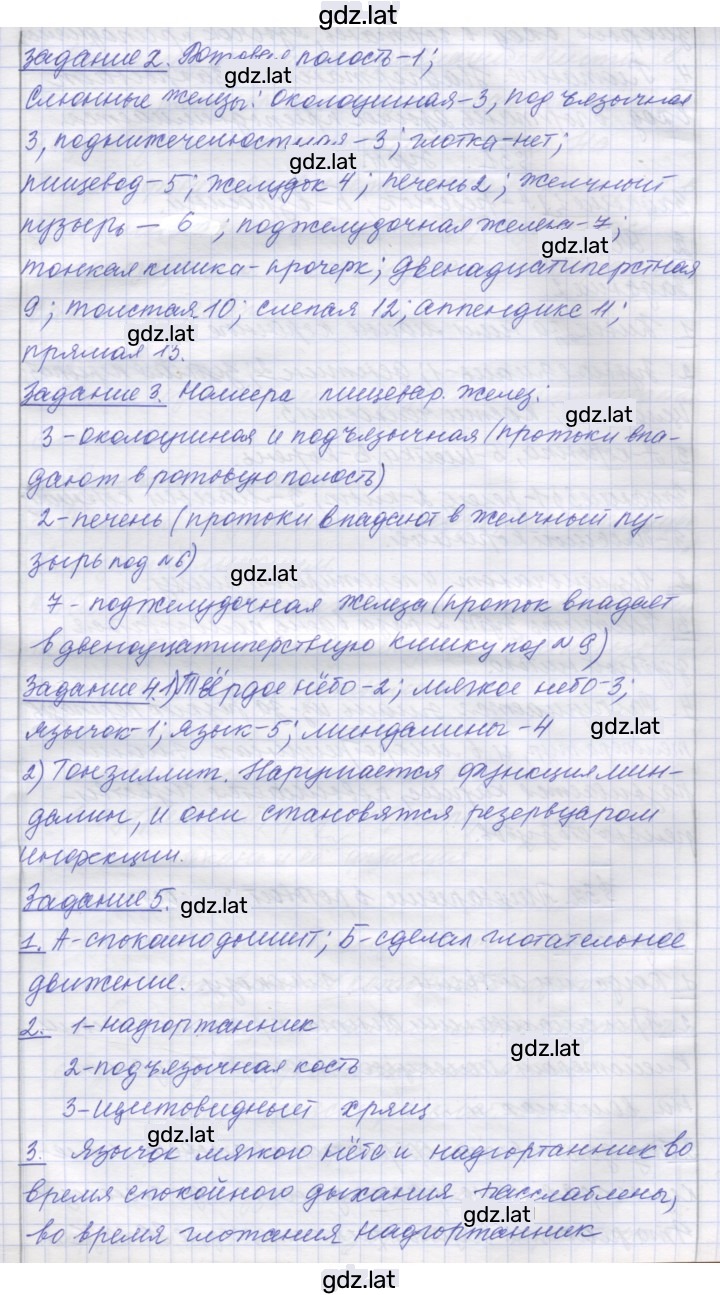 gdz.lat
Задание 2. Ротовая полость-1;
gdz.lat
Слюнные железы: околоушная-3, подъязычная
3, поднижечелюстная-3; глотка-нет;
gdz.lat
пищевод-5; желудок 4; печень 2; желчный
пузырь - 6 ; поджелудочная железа-7;
gdz.lat
тонкая кишка-прочерк; двенадцатиперстная
9; толстая 10; слепая 12; аппендикс 11;
gdz.lat
прямая 13.
Задание 3. Номера пищевар. желез:
gdz.lat
3-околоушная и подъязычная (протоки впа-
дают в ротовую полость)
2-печень (протоки впадают в желчный пу-
зырь под №6)
gdz.lat
7 - поджелудочная железа (проток впадает
в двенадцатиперстную кишку под №9)
Задание 4. 1) Твёрдое нёбо-2; мягкое небо-3;
язычок-1; язык-5; миндалины-4
gdz.lat
2) Тонзиллит. Нарушается функция мин-
далин, и они становятся резервуаром
инфекции.
Задание 5.
gdz.lat
1. А-спокойно дышит; Б-сделал глотательное
движение.
2. 1-надгортанник
gdz.lat
2-подъязычная кость
3-щитовидный хрящ
gdz.lat
3. Язычок мягкого нёба и надгортанник во
время спокойного дыхания расслаблены,
gdz.lat
во время глотания надгортанник
gdz.lat